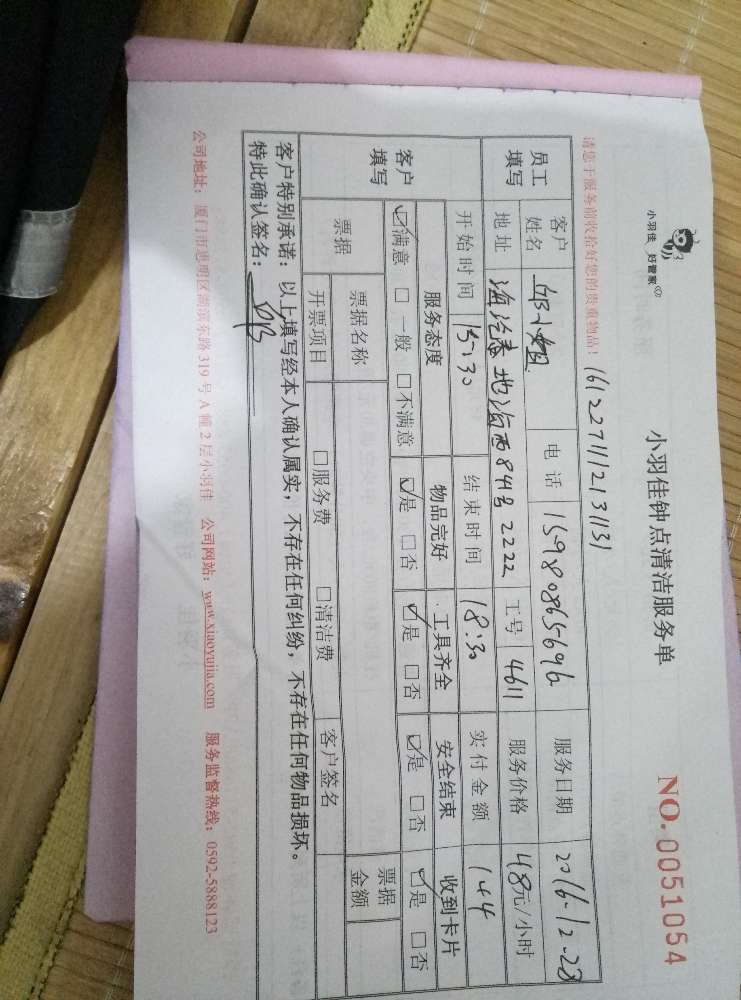 小羽佳 好管家
小羽佳钟点清洁服务单
NO. 0051054
请您于服务前收拾好您的贵重物品！ 161227111213131
员工填写 客户姓名 小姐 电话 15980865696 服务日期 2016-12-28
地址 海沧春地海西84号2222 工号 4611 服务价格 48元/小时
客户填写 开始时间 15:30 结束时间 18:30 实付金额 144
服务态度 物品完好 工具齐全 安全结束 收到卡片
☑满意 □一般 □不满意 ☑是 □否 ☑是 □否 ☑是 □否 ☑是 □否
票据 票据名称 票据金额
开票项目 □服务费 □清洁费 客户签名
客户特别承诺：以上填写经本人确认属实，不存在任何纠纷，不存在任何物品损坏。
特此确认签名：
公司地址：厦门市思明区湖滨东路319号A幢2层小羽佳 公司网站：www.xiaoyujia.com 服务监督热线：0592-5888123